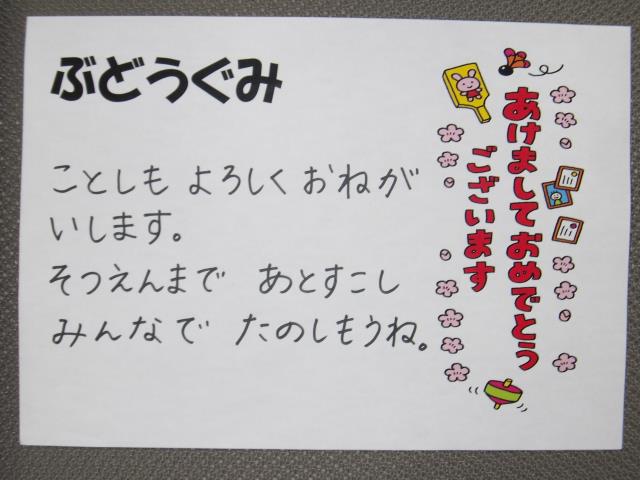 ぶどうぐみ
ことしも よろしく おねが
いします。
そつえんまで あとすこし
みんなで たのしもうね。
あけましておめでとう
ございます